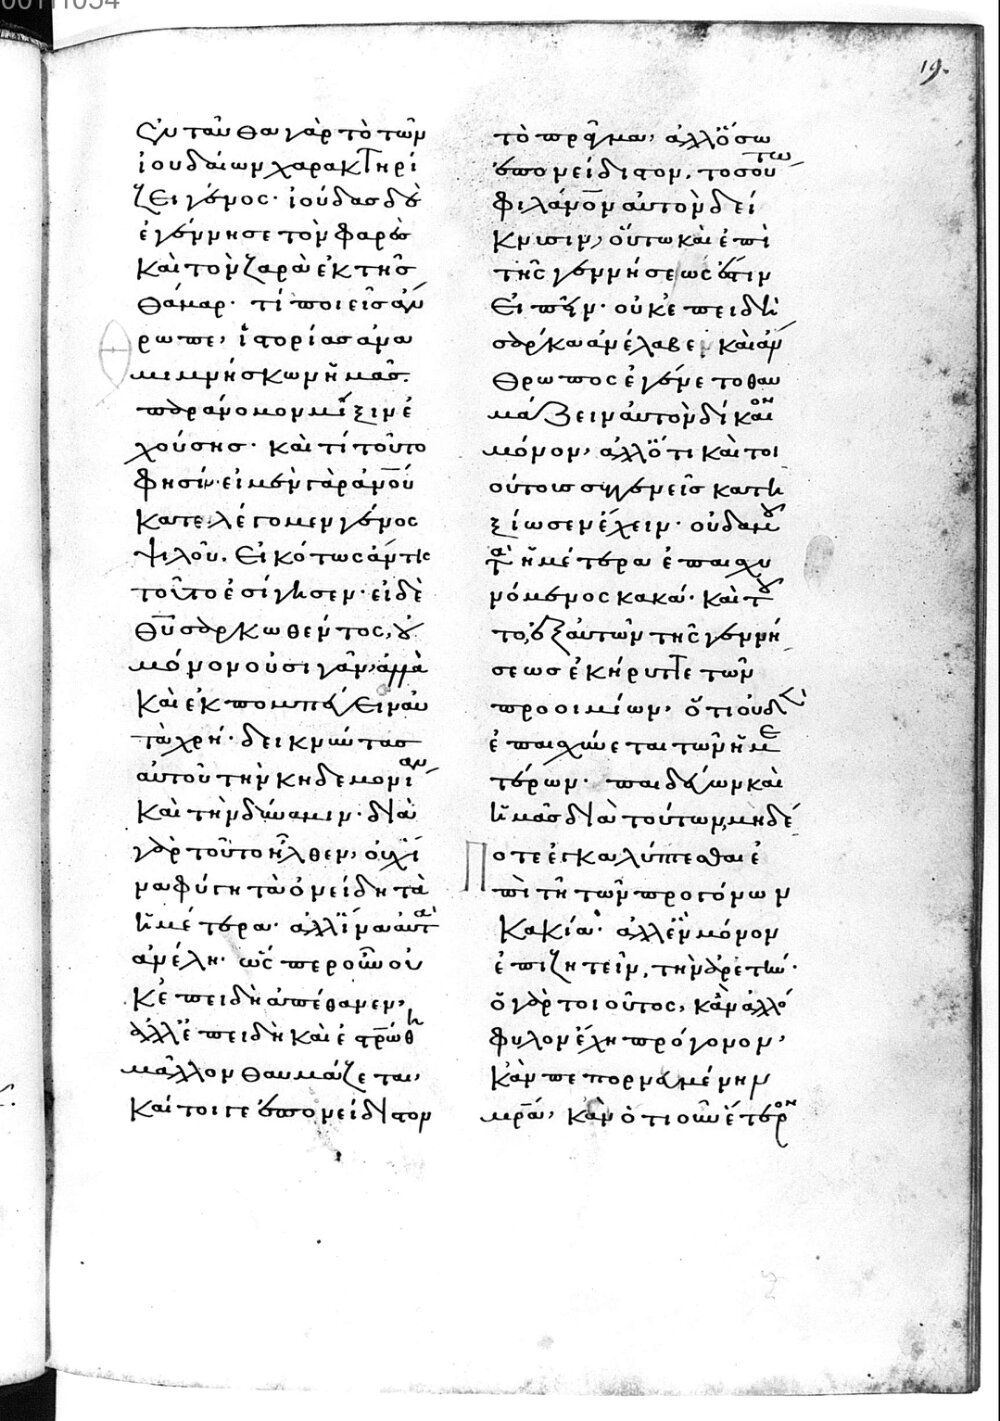 00111054
19.
ἐνταῦθα γὰρ τὸ τῶν
ἰουδαίων χαρακτηρί
ζει γένος· ἰούδας δὲ
ἐγέννησε τὸν φαρὲς
καὶ τὸν ζαρὰ ἐκ τῆς
θάμαρ· τί ποιεῖς ἄν
ρωπε, ἱστορίας ἀνα
μιμνήσκων ἡμᾶς
παράνομον μῖξιν ἐ
χούσης· καὶ τί τοῦτο
φησίν· εἰ μὲν γὰρ ἀνο̅ύ
κατελέγομεν γένος
ψιλοῦ. εἰκότως ἄν τις
τοῦτο ἐσίγησεν· εἰ δὲ
θ̅υ σαρκωθέντος, οὐ
μόνον οὐ σιγᾶν, ἀλλὰ
καὶ ἐκπομπεύειν αὐ
τὰ χρή· δεικνύντας
αὐτοῦ τὴν κηδεμονίαν
καὶ τὴν δύναμιν· διὰ
γὰρ τοῦτο ἦλθεν, οὐχ ἵ
να φύγη τὰ ὀνείδη τὰ
ἡμέτερα· ἀλλ' ἵνα αὐτὰ
ἀνέλη· ὥσπερ οὖν οὐ
κ ἐπειδὴ ἀπέθανεν,
ἀλλ' ἐπειδὴ καὶ ἐστρώθη
μᾶλλον θαυμάζεται,
καίτοιγε ἐπονείδιστον
τὸ πρᾶγμα, ἀλλ' ὅσω
ἐπονείδιστον, τοσούτω
φιλάνο̅ν αὐτὸν δεί
κνυσιν, οὕτω καὶ ἐπὶ
τῆς γεννήσεως ἔστιν
εἰπεῖν· οὐκ ἐπειδὴ
σάρκα ἀνέλαβε καὶ ἄν
θρωπος ἐγένετο θαυ
μάζειν αὐτὸν δίκαιον
μόνον, ἀλλ' ὅτι καὶ τοι
ούτους συγγενεῖς κατη
ξίωσεν ἔχειν· οὐδαμοῦ
τὰ ἡμέτερα ἐπαισχυ
νόμενος κακά· καὶ τοῦ
το, ἐξ αὐτῶν τῆς γεννή
σεως ἐκήρυττε τῶν
προοιμίων, ὅτι οὐδὲν
ἐπαισχύνεται τῶν ἡμε
τέρων· παιδεύων καὶ
ἡμᾶς διὰ τούτων, μηδέ
ποτε ἐγκαλύπτεσθαι ἐ
πὶ τῆ τῶν προγόνων
κακία· ἀλλ' ἓν μόνον
ἐπιζητεῖν, τὴν ἀρετήν·
ὁ γὰρ τοιοῦτος, κἂν ἀλλό
φυλον ἔχη πρόγονον,
κἂν πεπορνευμένην
μρ̅α, κἂν ὁτιοῦν ἕτερον